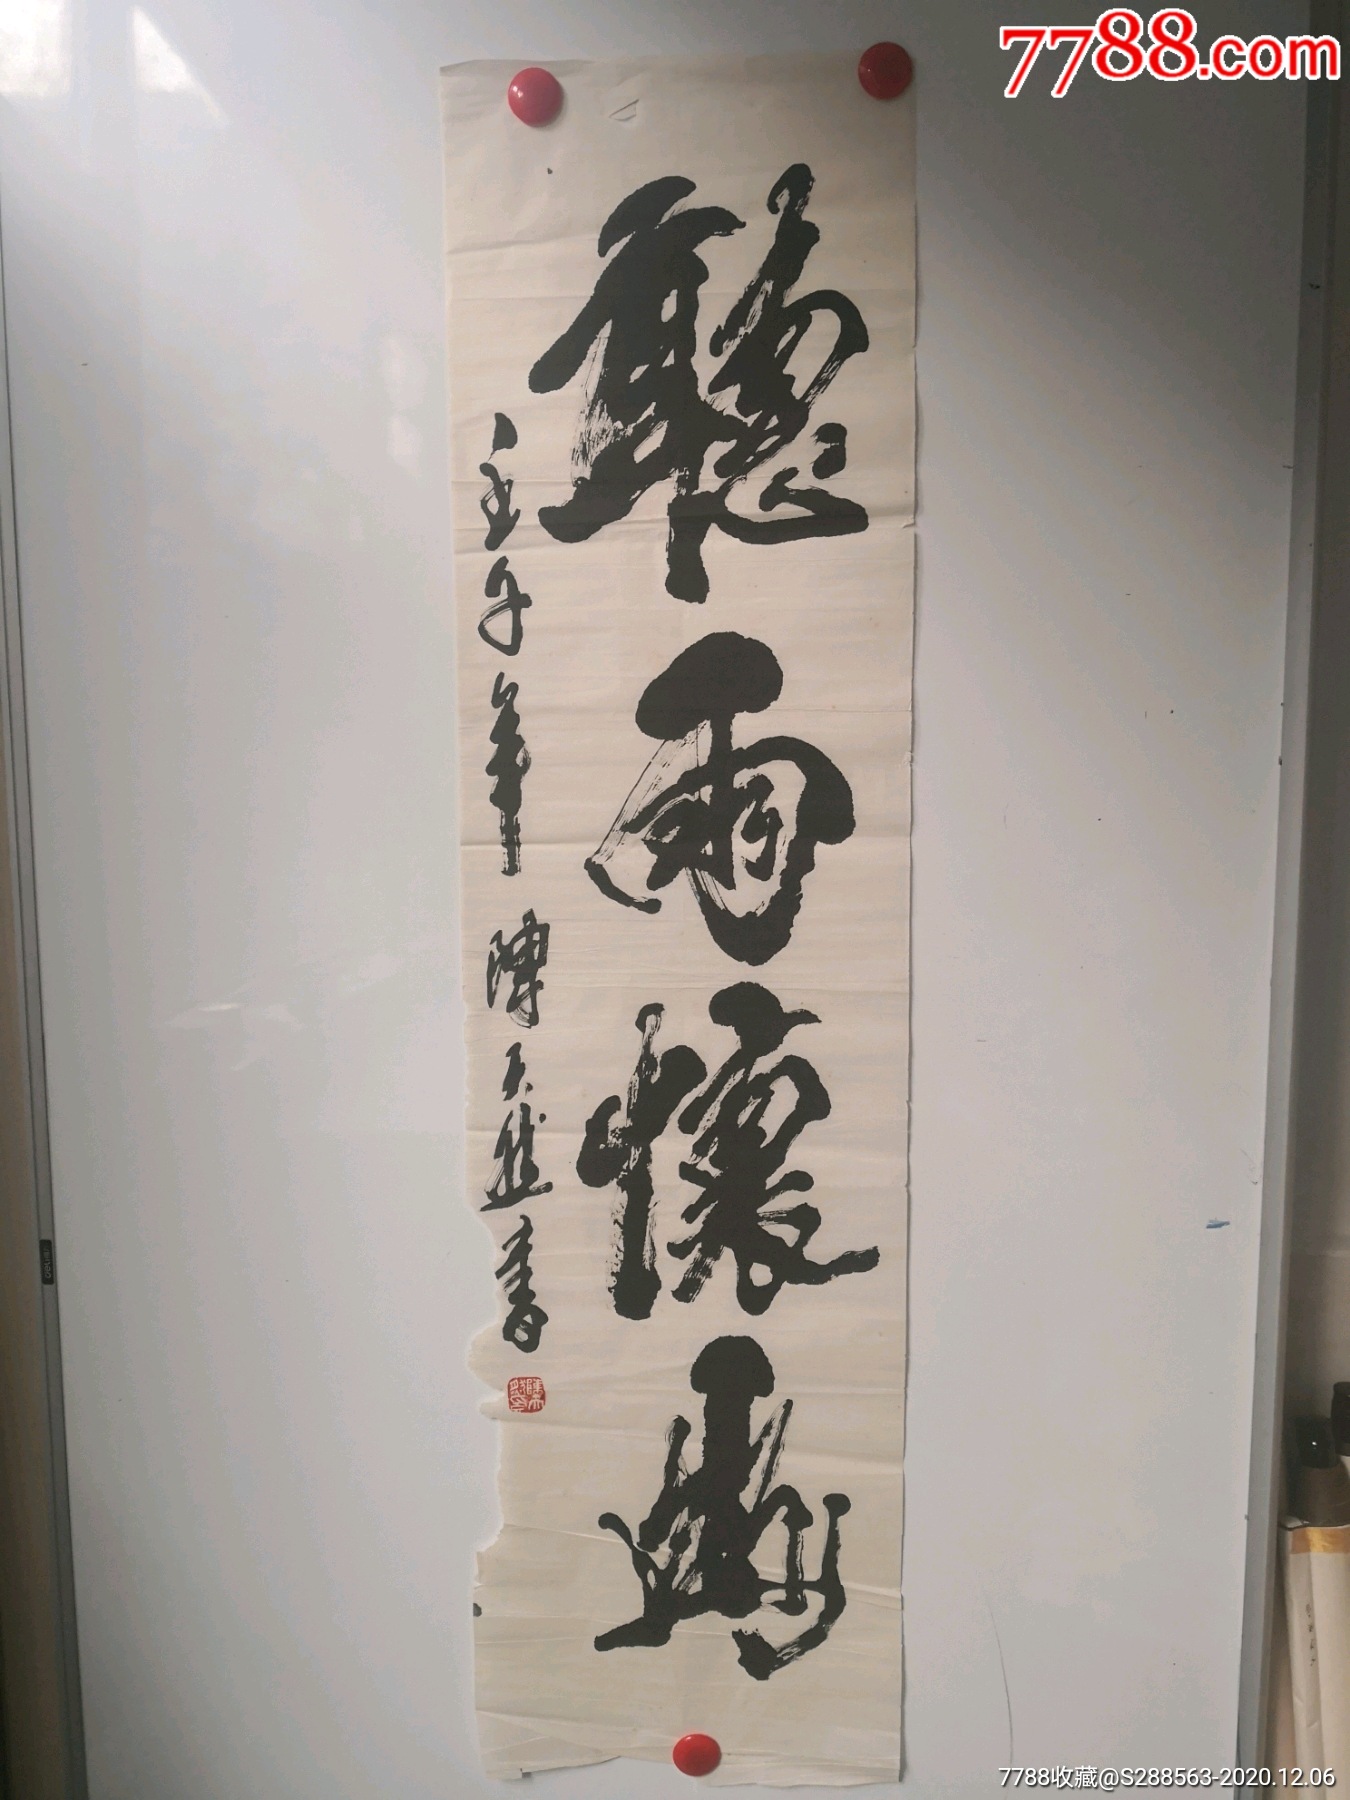 7788.com
聽雨懷幽
壬午年 陳天然書
7788收藏@S288563-2020.12.06